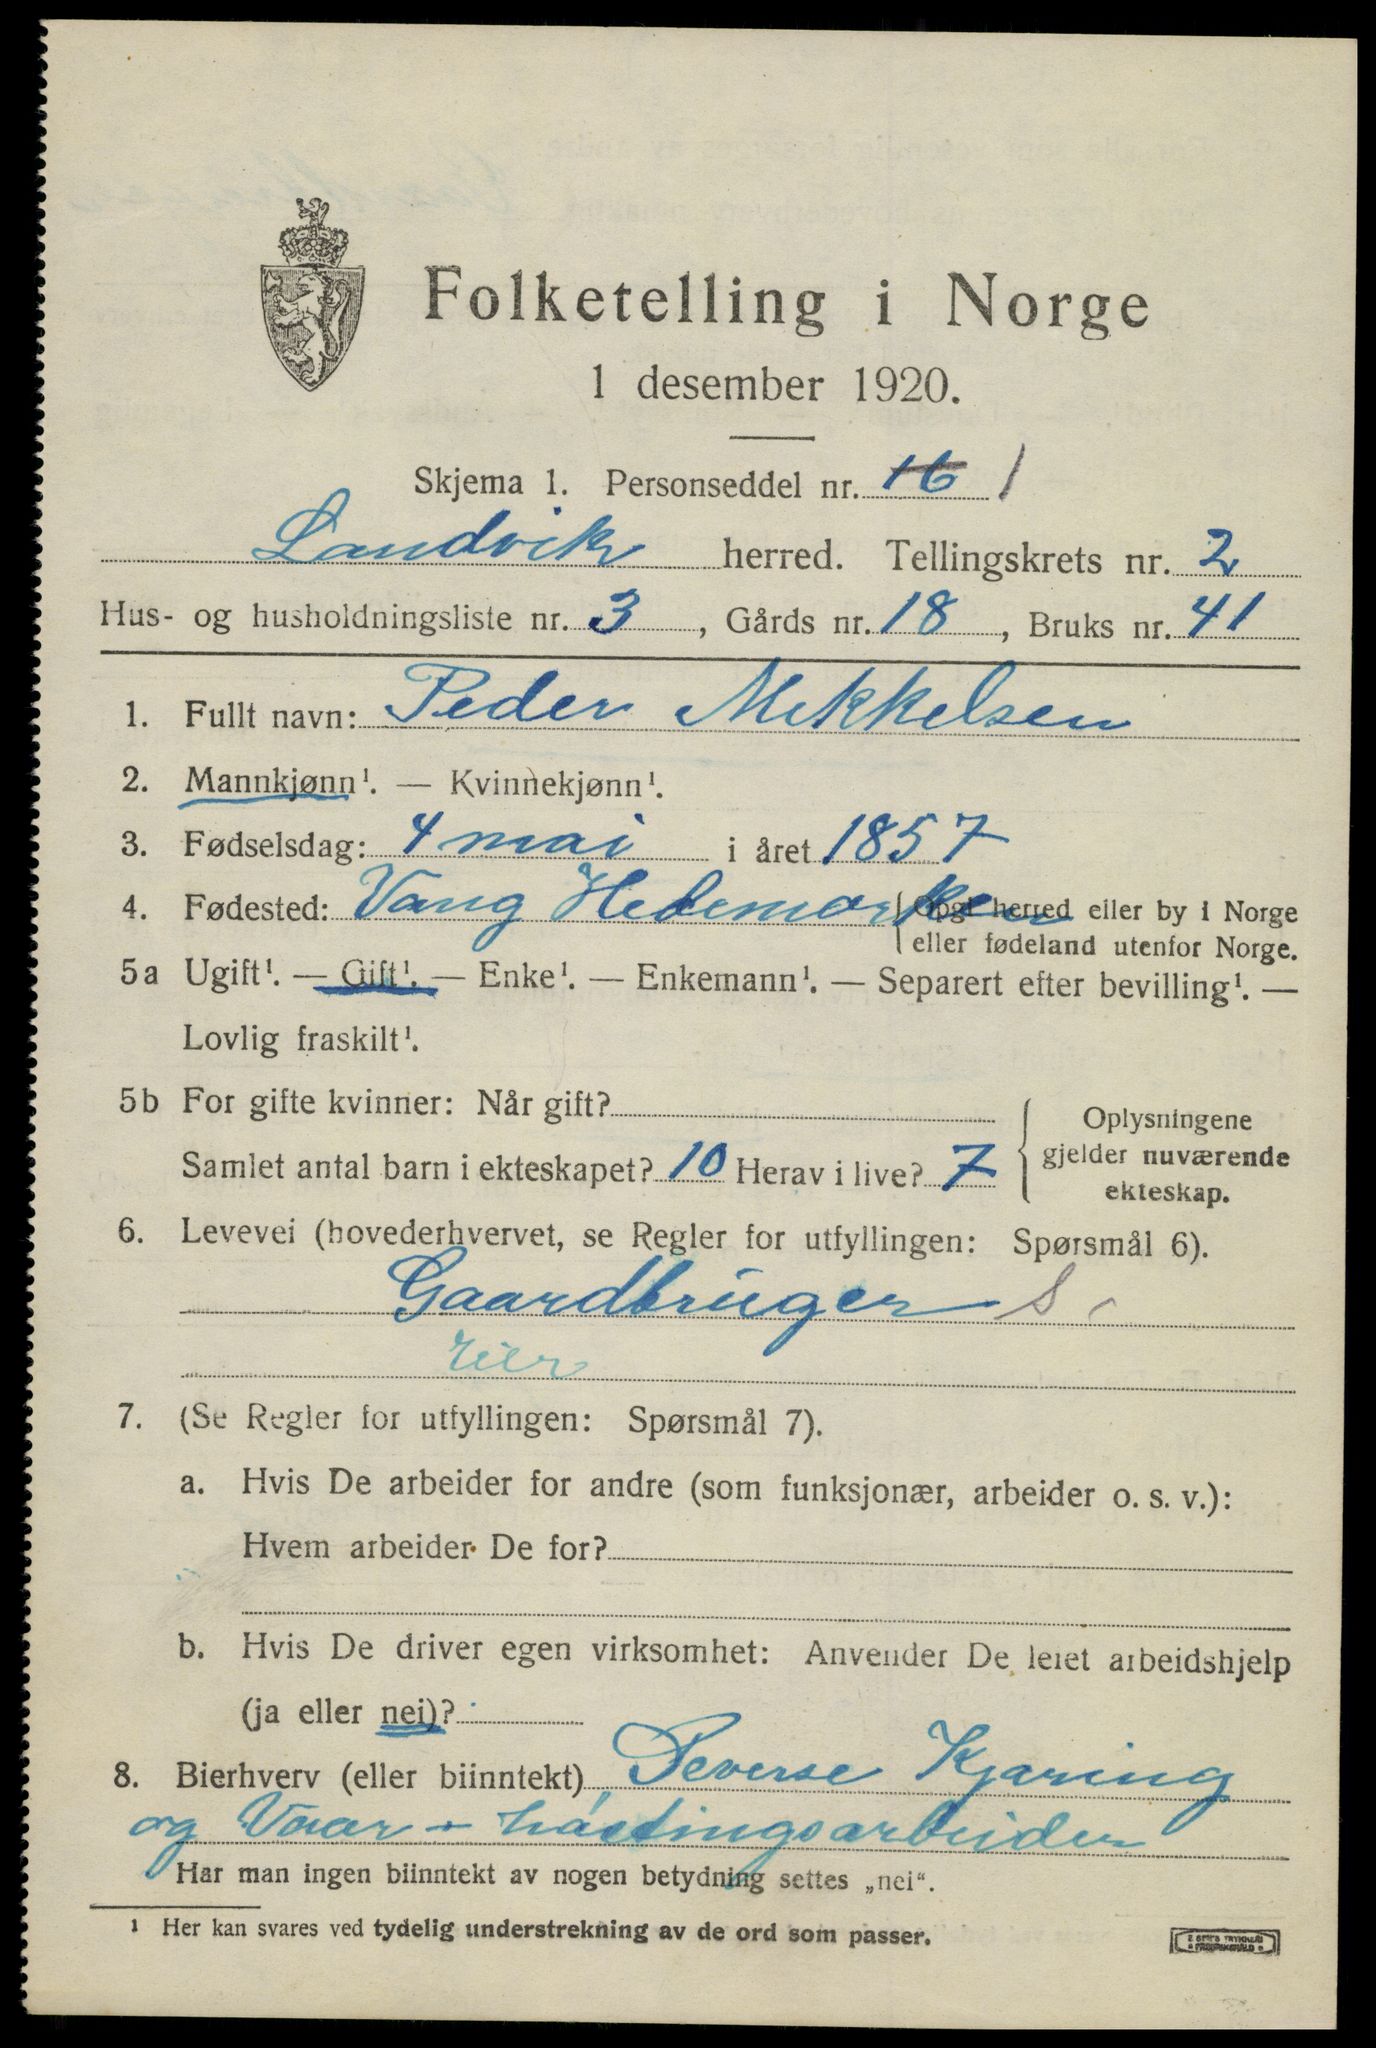 Folketelling i Norge
1 desember 1920.
Skjema 1. Personseddel nr. 16 1
Landvik herred. Tellingskrets nr. 2
Hus- og husholdningsliste nr. 3, Gårds nr. 18, Bruks nr. 41
1. Fullt navn: Peder Mekkelsen
2. Mannkjønn¹. — Kvinnekjønn¹.
3. Fødselsdag: 4 mai i året 1857
4. Fødested: Vang Hedemarken { Opgi herred eller by i Norge
eller fødeland utenfor Norge.
5a Ugift¹. — Gift¹. — Enke¹. — Enkemann¹. — Separert efter bevilling¹. —
Lovlig fraskilt¹.
5b For gifte kvinner: Når gift?
Samlet antal barn i ekteskapet? 10 Herav i live? 7
Oplysningene
gjelder nuværende
ekteskap.
6. Levevei (hovederhvervet, se Regler for utfyllingen: Spørsmål 6).
Gaardbruger S
eier
7. (Se Regler for utfyllingen: Spørsmål 7).
a. Hvis De arbeider for andre (som funksjonær, arbeider o. s. v.):
Hvem arbeider De for?
b. Hvis De driver egen virksomhet: Anvender De leiet arbeidshjelp
(ja eller nei)?
8. Bierhverv (eller biinntekt) Kjøring
og arbeider
Har man ingen biinntekt av nogen betydning settes „nei“.
¹ Her kan svares ved tydelig understrekning av de ord som passer.